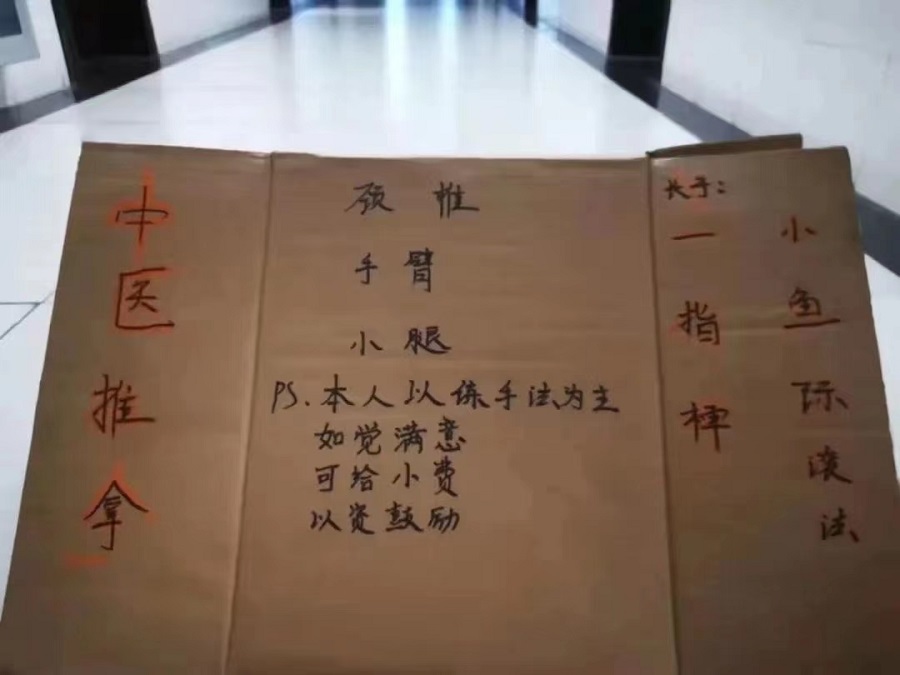 中医推拿
颈椎
手臂
小腿
PS.本人以练手法为主
如觉满意
可给小费
以资鼓励
长于:
一指禅
小鱼际滚法